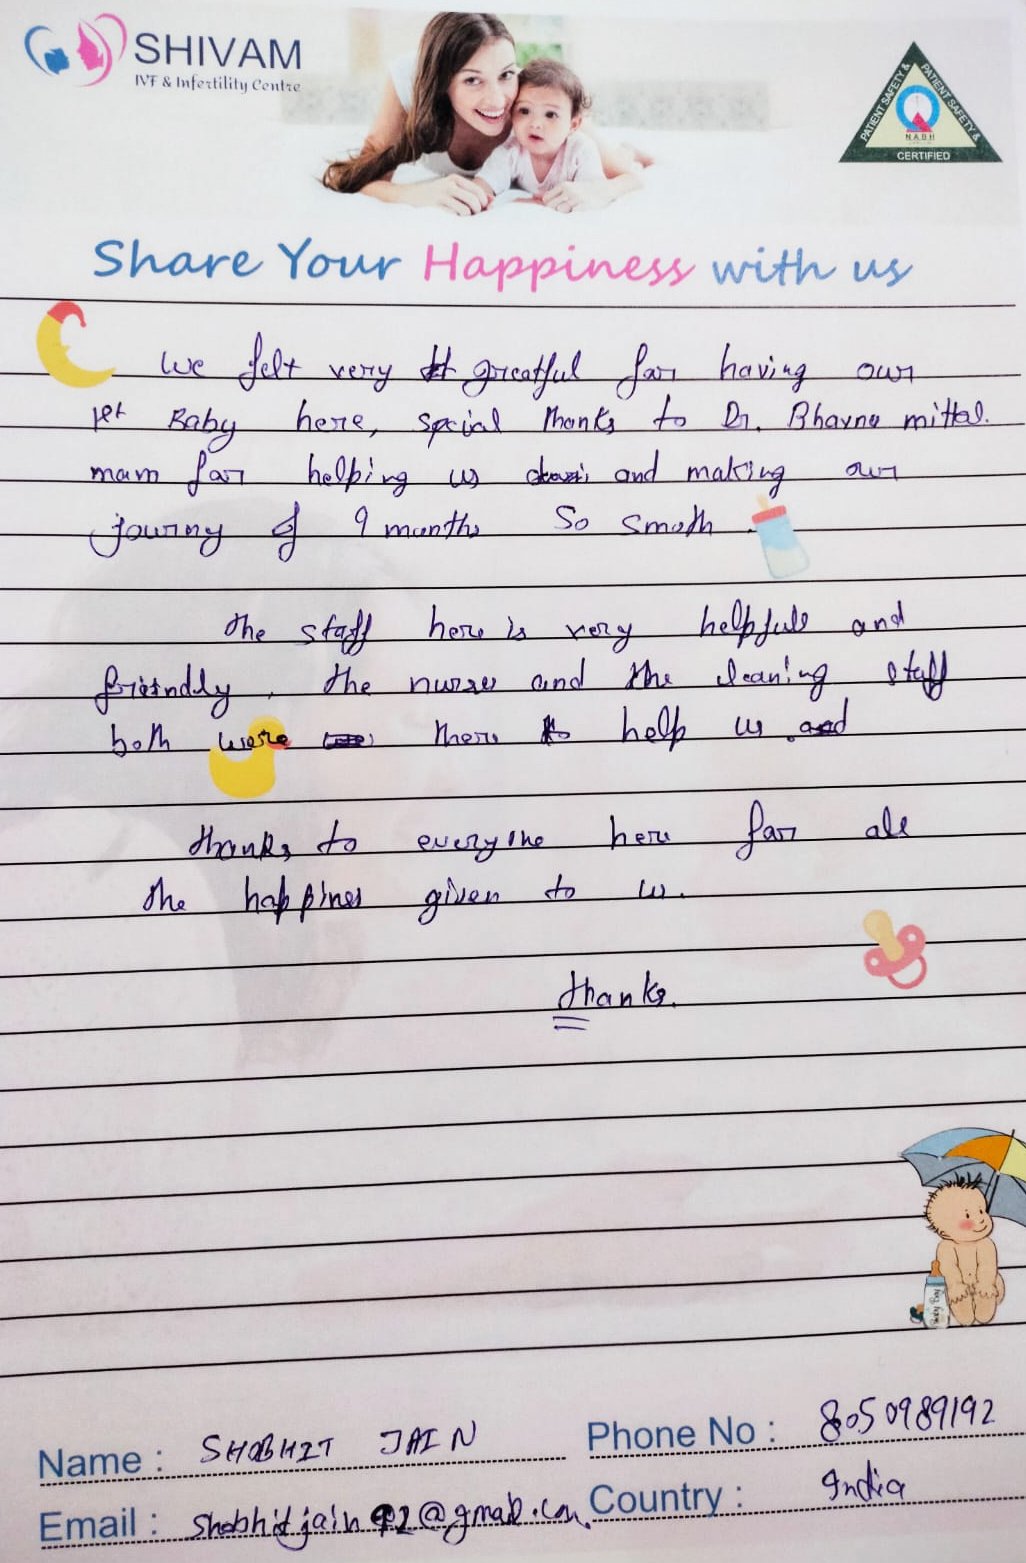 SHIVAM
IVF & Infertility Centre
PATIENT SAFETY & PATIENT SAFETY &
N.A.B.H
CERTIFIED
Share Your Happiness with us
We felt very greatful for having our
1st Baby here, spcial thanks to Dr. Bhavna mittal.
mam for helping us and making our
journy of 9 months So smoth.
the staff here is very helpfull and
friendly, the nurses and the cleaning staff
both were there to help us.
thanks to everyone here for all
the happines given to us.
thanks.
Baby Boy
Name : SHOBHIT JAIN Phone No : 8050989192
Email : shobhitjain92@gmail.com. Country : India